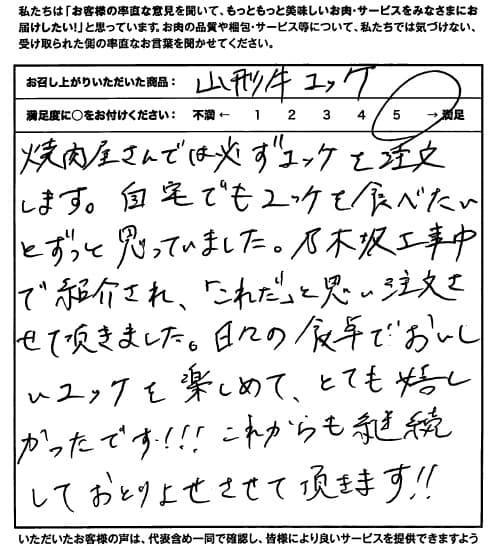 私たちは「お客様の率直な意見を聞いて、もっともっと美味しいお肉・サービスをみなさまにお
届けしたい!」と思っています。お肉の品質や梱包・サービス等について、私たちでは気づけない、
受け取られた側の率直なお言葉を聞かせてください。
お召し上がりいただいた商品： 山形牛ユッケ
満足度に○をお付けください： 不満 ← 1 2 3 4 5 → 満足
焼肉屋さんでは必ずユッケを注文
します。自宅でもユッケを食べたい
とずっと思っていました。乃木坂工事中
で紹介され、「これだ」と思い注文さ
せて頂きました。日々の食卓でおいし
いユッケを楽しめて、とても嬉し
かったです!!! これからも継続
しておとりよせさせて頂きます!!
いただいたお客様の声は、代表含め一同で確認し、皆様により良いサービスを提供できますよう